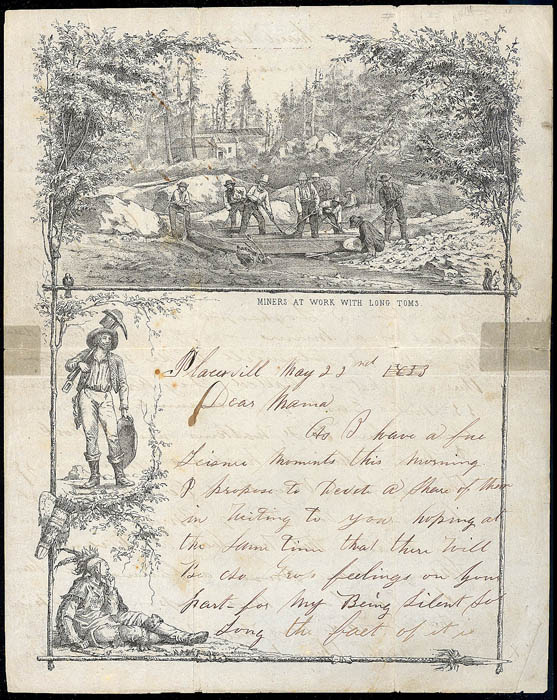 MINERS AT WORK WITH LONG TOMS.
Placervill May 22nd
Dear Mama
As I have a few
Leisure Moments this morning
I propose to Devote a Share of them
in Writing to you hoping at
the Same Time that there Will
Be feelings on your
part for My Being Silent So
Long the fact of it is